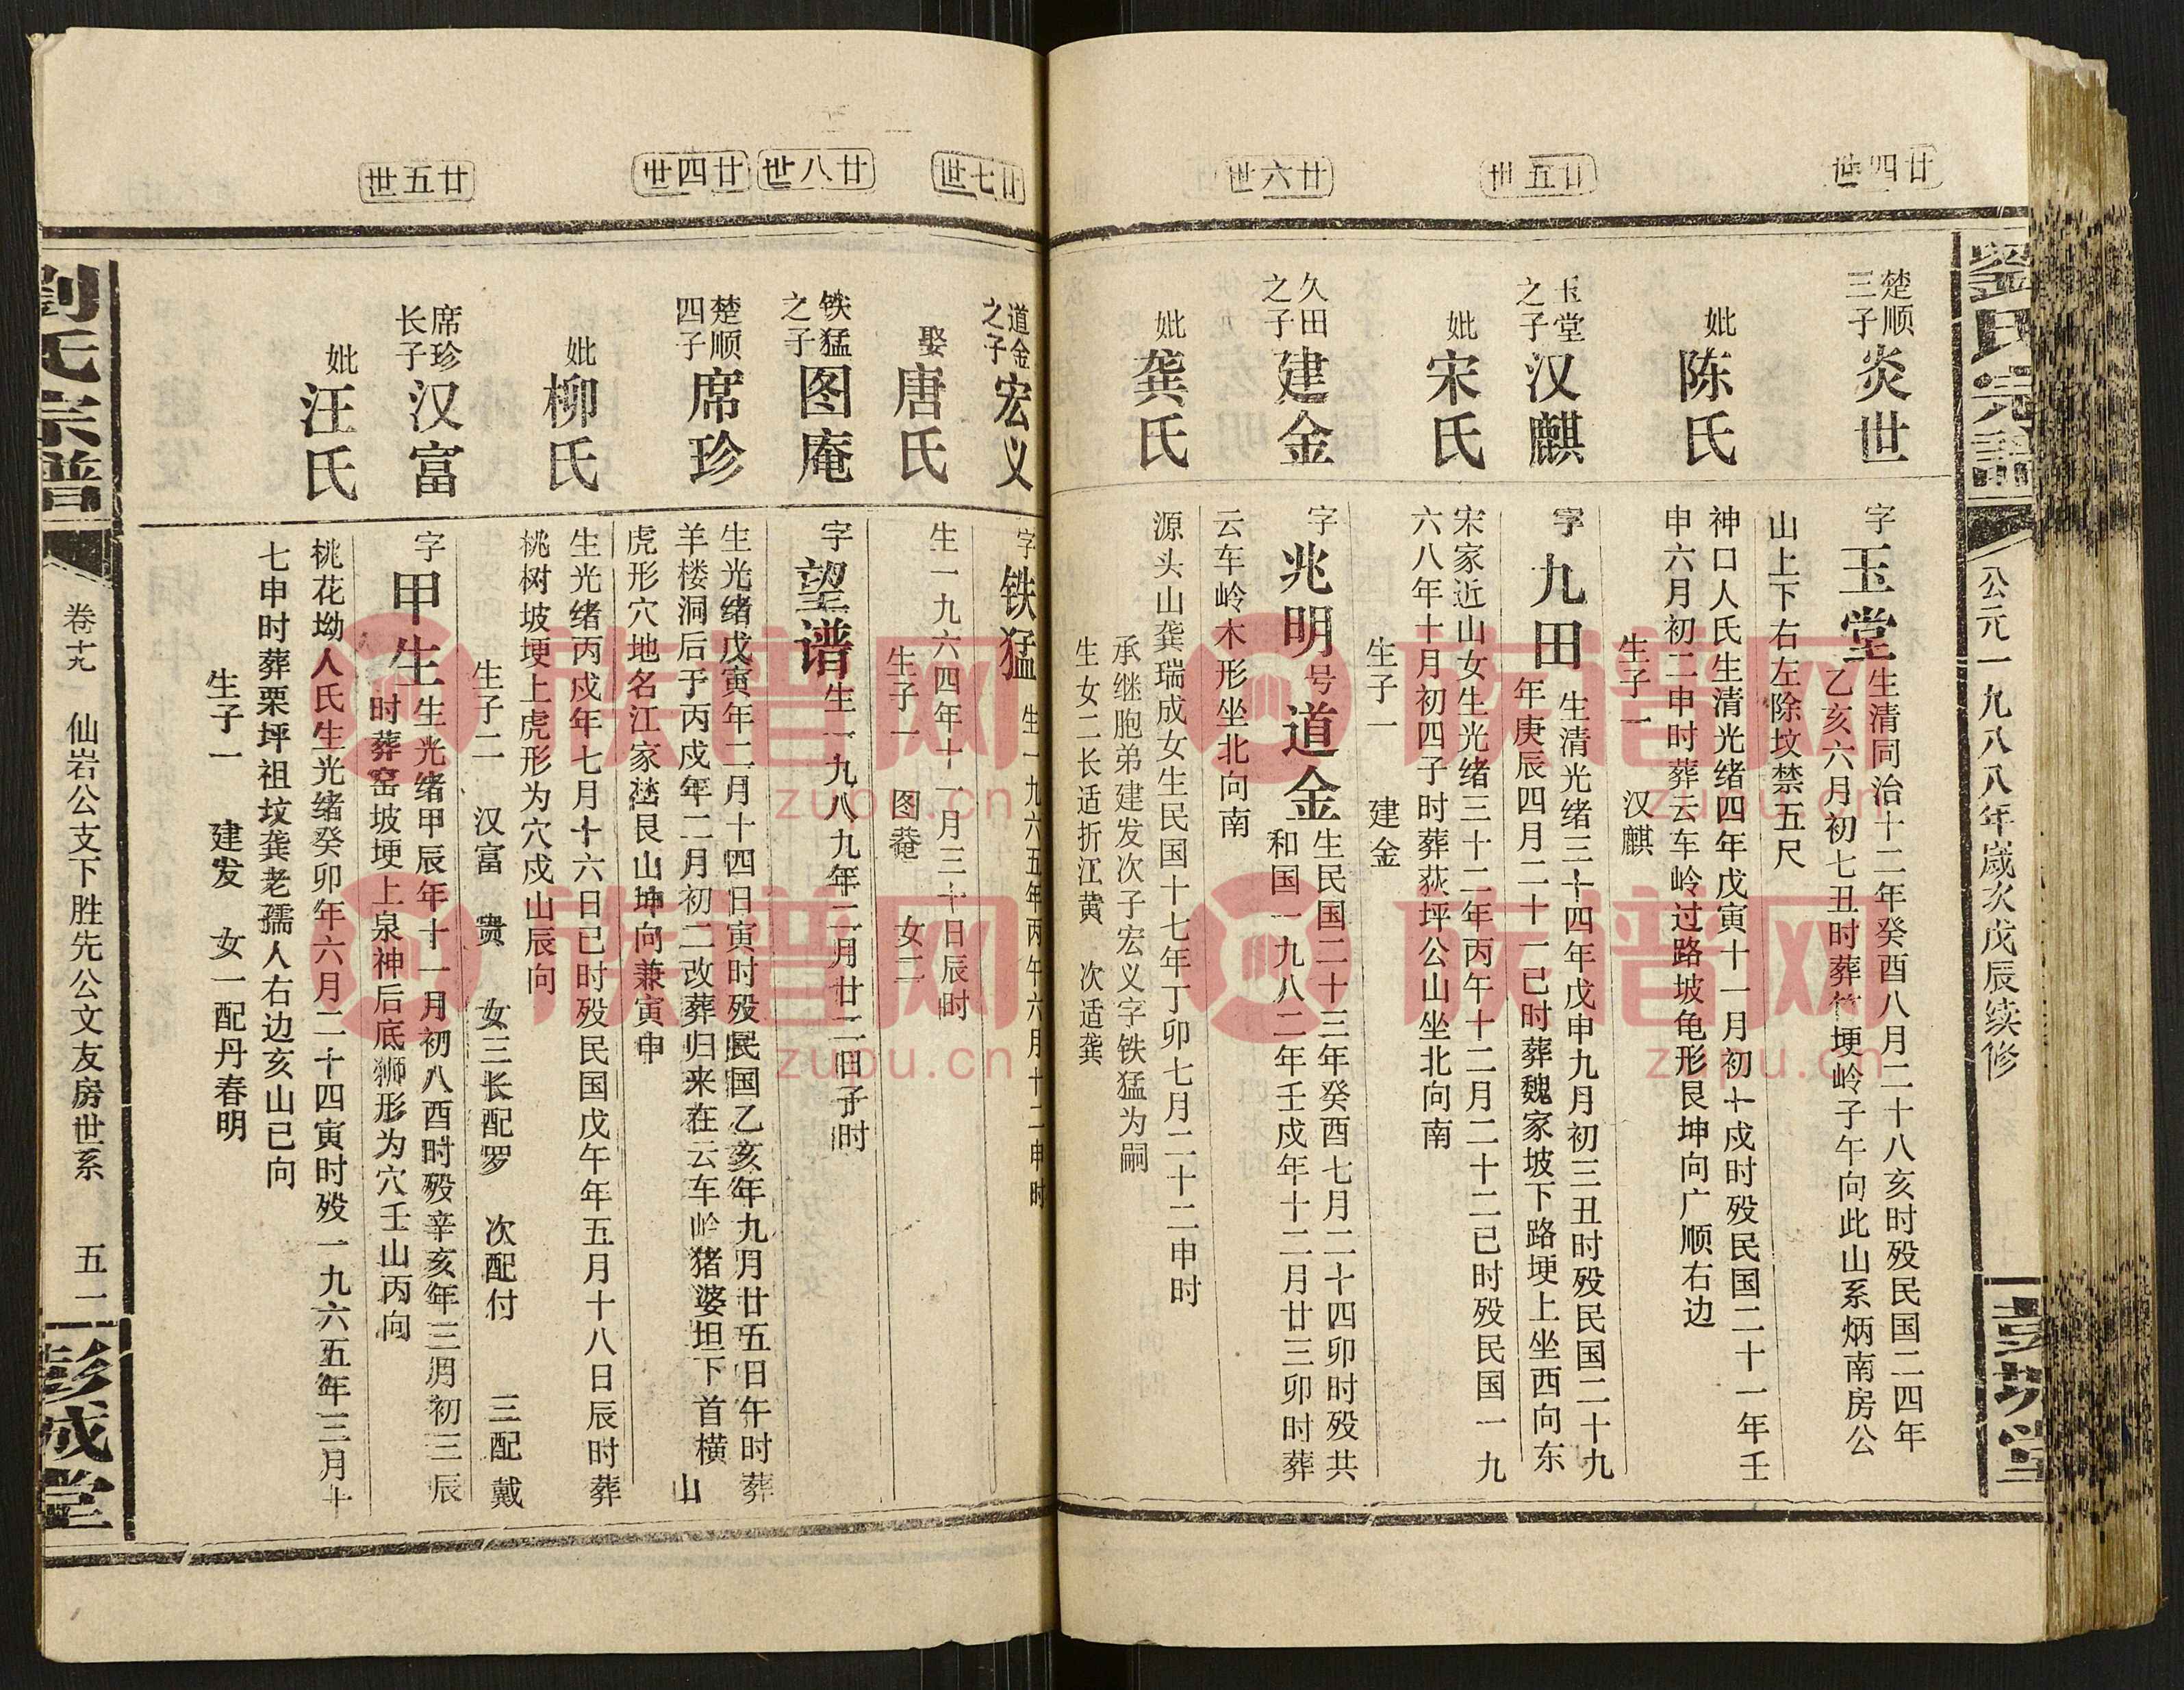 廿四世
廿五世
廿六世
廿七世
廿八世
廿四世
廿五世
劉氏宗譜
公元一九八八年歲次戊辰续修
彭城堂
楚顺
三子
炎世
字玉堂
生清同治十二年癸酉八月二十八亥时殁民国二四年
乙亥六月初七丑时葬竹埂岭子午向此山系炳南房公
山上下右左除坟禁五尺
妣
陈氏
神口人氏生清光绪四年戊寅十一月初十戍时殁民国二十一年壬
申六月初二申时葬云车岭过路坡龟形艮坤向广顺右边
生子一 汉麒
玉堂
之子
汉麒
字九田
生清光绪三十四年戊申九月初三丑时殁民国二十九
年庚辰四月二十一已时葬魏家坡下路埂上坐西向东
妣
宋氏
宋家近山女生光绪三十二年丙午十二月二十二已时殁民国一九
六八年十月初四子时葬荻坪公山坐北向南
生子一 建金
久田
之子
建金
字兆明号道金
生民国二十三年癸酉七月二十四卯时殁共
和国一九八二年壬戍年十二月廿三卯时葬
云车岭木形坐北向南
妣
龚氏
源头山龚瑞成女生民国十七年丁卯七月二十二申时
承继胞弟建发次子宏义字铁猛为嗣
生女二长适折江黄 次适龚
道金
之子
宏义
字铁猛
生一九六五年丙午六月十二申时
娶
唐氏
生一九六四年十一月三十日辰时
生子一 图菴 女二
铁猛
之子
图庵
字望谱
生一九八九年二月廿二日子时
楚顺
四子
席珍
生光绪戊寅年二月十四日寅时殁民国乙亥年九月廿五日午时葬
羊楼洞后于丙戍年二月初二改葬归来在云车岭猪婆坦下首横山
虎形穴地名江家嵳艮山坤向兼寅申
妣
柳氏
生光绪丙戍年七月十六日已时殁民国戊午年五月十八日辰时葬
桃树坡埂上虎形为穴戍山辰向
生子二 汉富 贵 女三长配罗 次配付 三配戴
席珍
长子
汉富
字甲生
生光绪甲辰年十一月初八酉时殁辛亥年三月初三辰
时葬窑坡埂上泉神后底狮形为穴壬山丙向
妣
汪氏
桃花坳人氏生光绪癸卯年六月二十四寅时殁一九六五年三月十
七申时葬栗坪祖坟龚老孺人右边亥山已向
生子一 建发 女一配丹春明
劉氏宗譜
卷十九 仙岩公支下胜先公文友房世系 五一
彭城堂
族谱网
zupu.cn
族谱网
zupu.cn
族谱网
zupu.cn
族谱网
zupu.cn